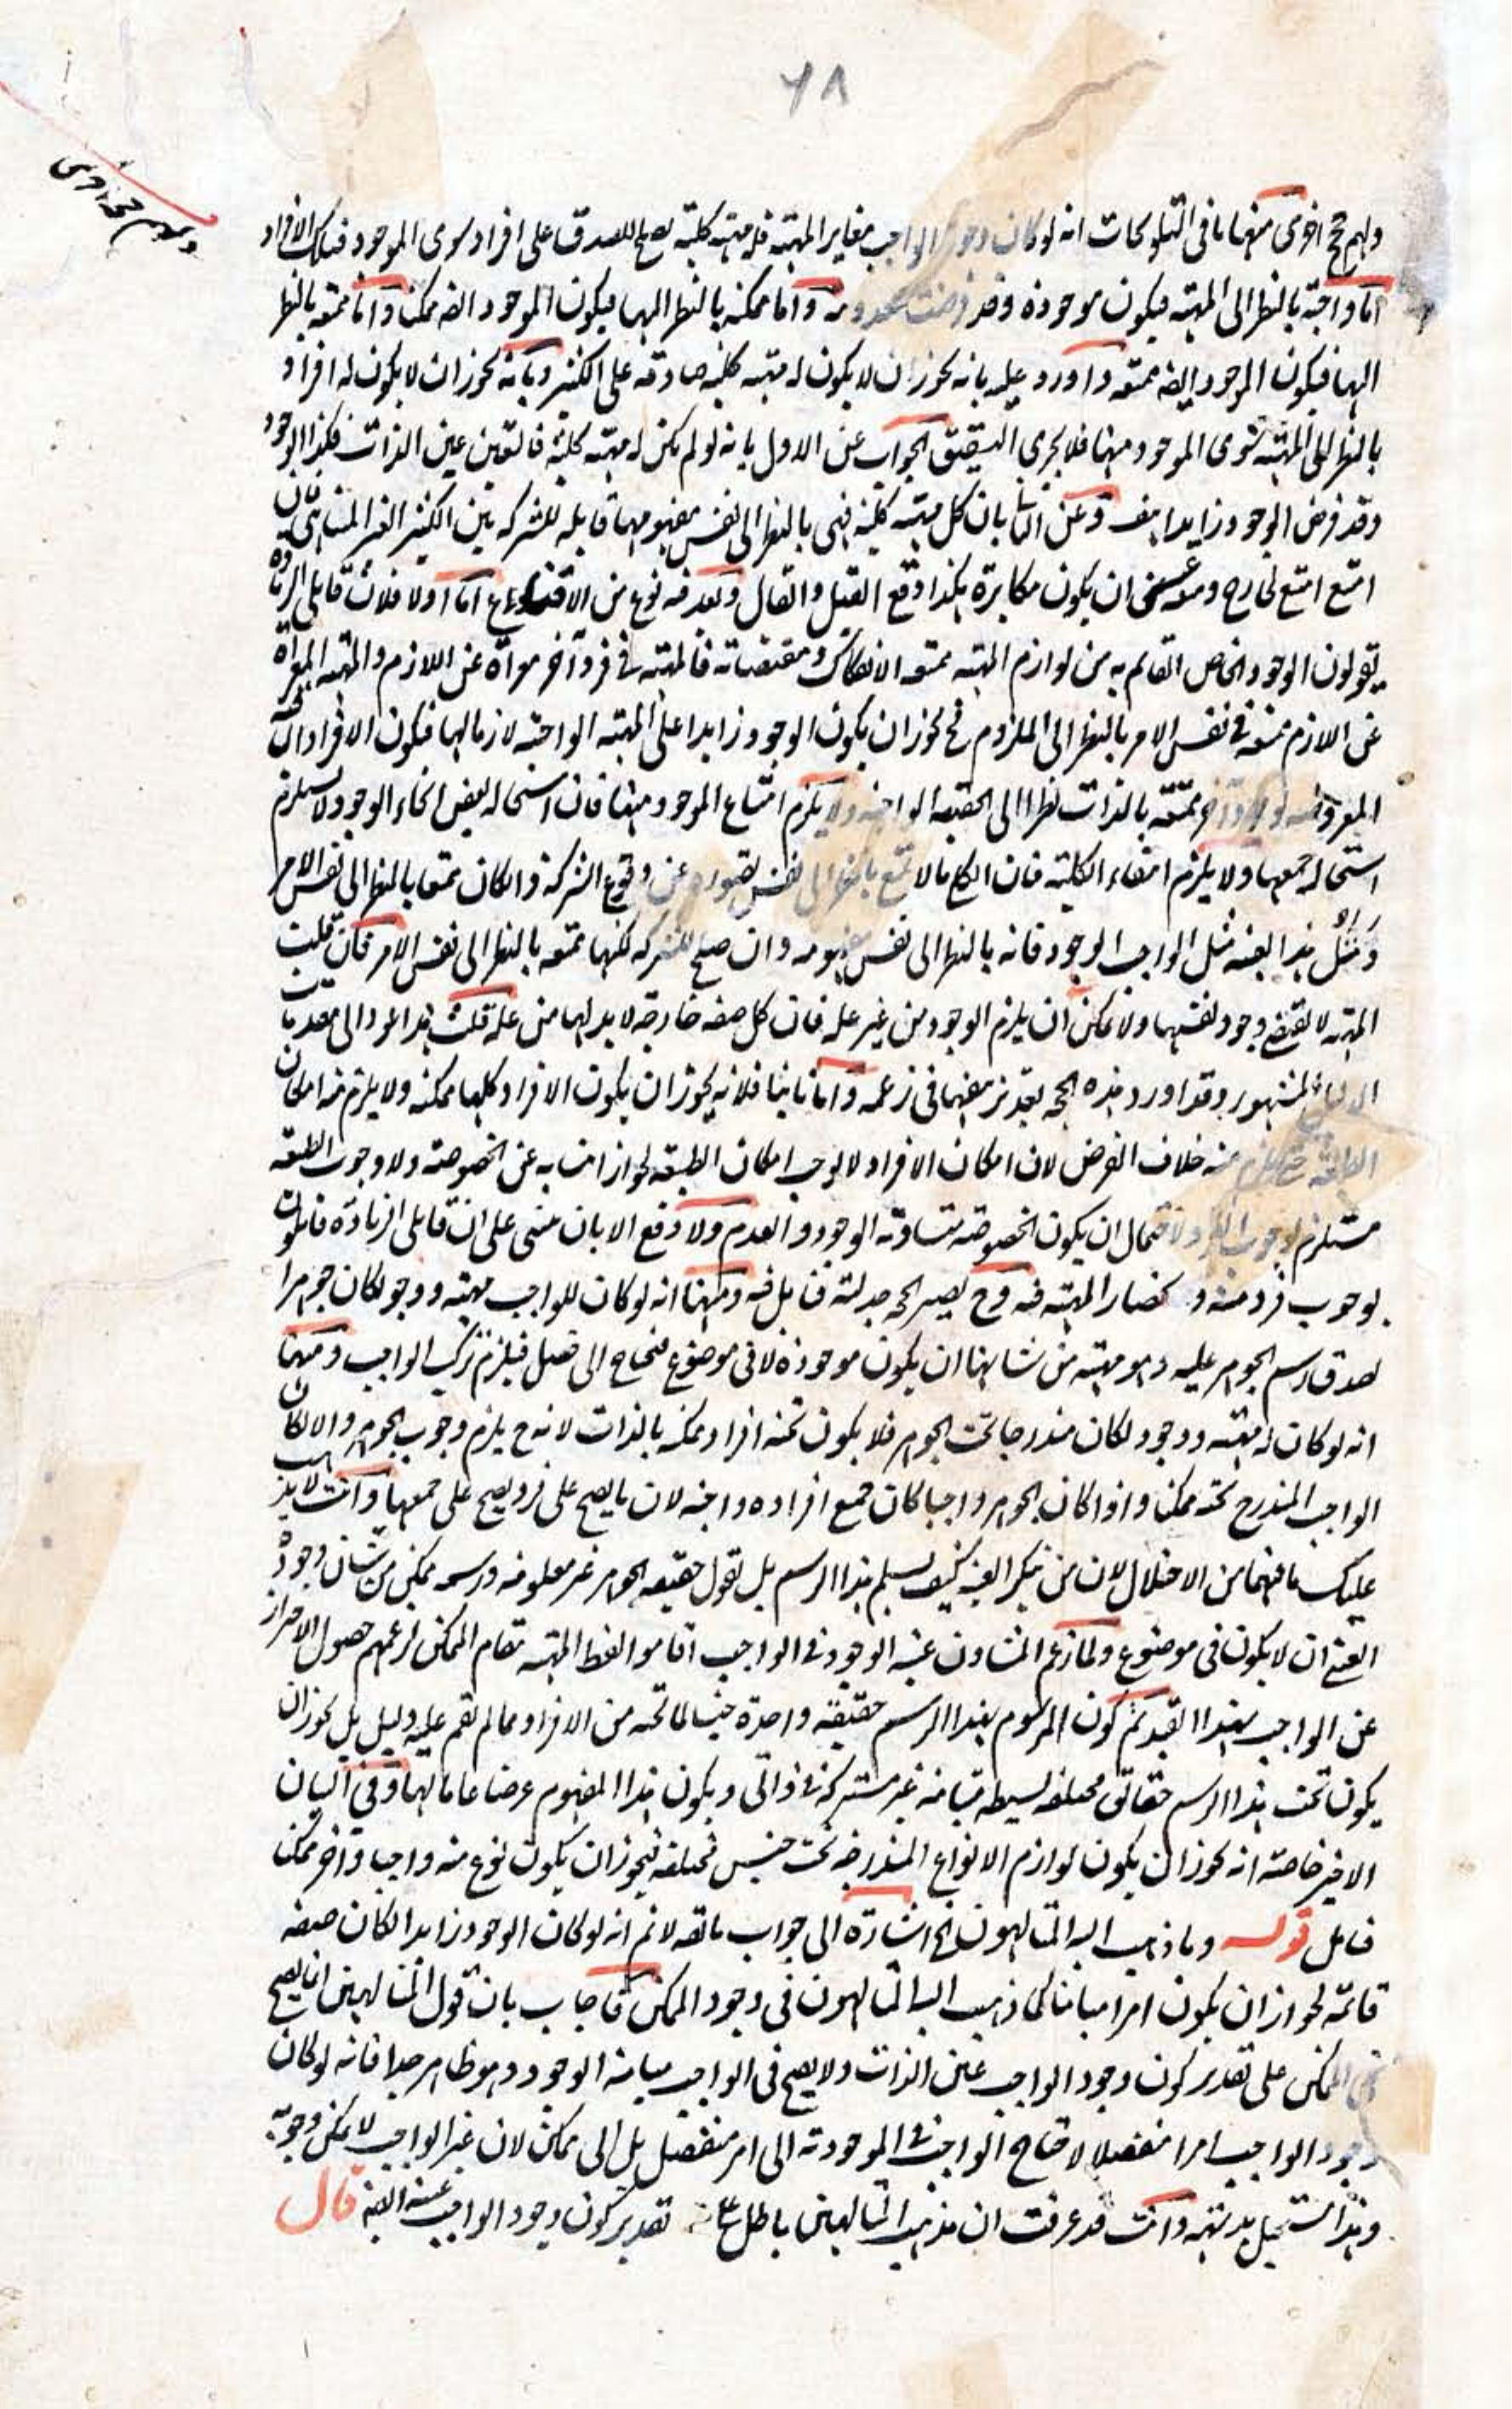 ٦٨
ولهم حجج اخرى
ولهم حجج اخرى منها ما فى التلويحات انه لو كان وجود الواجب مغاير المهية فله مهية كلية يصلح للصدق على افراد سوى الموجود فتلك الافراد
اما واجبة بالنظر الى المهية فيكون موجودة وقد فرضت معدومة واما ممكنة بالنظر اليها فيكون الموجود ايضه ممكنا واما ممتنعة بالنظر
اليها فيكون الموجود ايضه ممتنعه واورد عليه بانه يجوز ان لا يكون له مهية كلية صادقة على الكثير وبانه يجوز ان لا يكون له افراد
بالنظر الى المهية سوى الموجود منها فلا يجرى الشقيق الجواب عن الاول بانه لو لم يكن له مهية كلية فالتعين عين الذات فكذا الوجود
وقد فرض الوجود زايدا هف وعن الثانى بان كل مهية كلية فهى بالنظر الى نفس مفهومها قابلة للشركة بين الكثير الغير المتناهى فان
امتنع امتنع لخارج ومنعه عسى ان يكون مكابرة هكذا وقع القيل والقال وبعد فيه نوع من الاقناع اما اولا فلان قايلى الزيادة
يقولون الوجود الخاص القائم به من لوازم المهية ممتنعه الانفكاك ومقتضياته فالمهية فى فرد آخر معراة عن اللازم والمهية المعراة
عن اللازم ممتنعة فى نفس الامر بالنظر الى الملزوم فح يجوز ان يكون الوجود زايدا على المهية الواجبة لازما لها فيكون الافراد
المعروضه ممتنعة بالذات نظرا الى الحقيقة الواجبة ولا يلزم امتناع الموجود منها فان استحالة بعض انحاء الوجود لا يستلزم
استحالة جميعها ولا يلزم انتفاء الكلية فان الكلى ما لا يمنع بالنظر الى نفس تصوره عن وقوع الشركة وان كان ممتنعا بالنظر الى نفس الامر
ومثل هذا بعينه مثل الواجب الوجود فانه بالنظر الى نفس مفهومه وان صلح للشركة لكنها ممتنعه بالنظر الى نفس الامر فان قلت
المهية لا تقتضى وجود نفسها ولا يمكن ان يلزم الوجود من غير علة فان كل صفة خارجة لا بد لها من علة قلت هذا عود الى مقدمات
الدليل المشهور وقد اورد هذه الحجة بعد تزييفها فى زعمه واما ثانيا فلانه يجوز ان يكون الافراد كلها ممكنة ولا يلزم منه امكان
الطبيعة حتى يلزم منه خلاف الفرض لان امكان الافراد لا يوجب امكان الطبيعة لجواز انتسابه عن الخصوصية ولا وجوب الطبيعة
مستلزم لوجوب الفرد لاحتمال ان يكون الخصوصية متساوية الوجود والعدم ولا دفع الا بان مبنى على ان قايلى الزيادة قايلون
بوجوب فرد منه و انحصار المهية فيه وح يصير الحجة جدلية فتأمل فيه ومنها انه لو كان للواجب مهية ووجود لكان جوهرا
لصدق رسم الجوهر عليه وهو مهية من شانها ان يكون موجودة لا فى موضوع فيحتاج الى فصل فيلزم تركب الواجب ومنها
انه لو كان له مهية ووجود لكان مندرجا تحت الجوهر فلا يكون تحته افراد ممكنة بالذات لانه ح يلزم وجوب الجوهر والا لكان
الواجب المندرج تحته ممكنا واذا كان الجوهر واجبا كان جميع افراده واجبة لان ما يصح على فرد يصح على جميعها وانت لا يذهب
عليك ما فيهما من الاختلال لان من ينكر العينية كيف يسلم هذا الرسم بل يقول حقيقة الجوهر غير معلومة ورسمه ممكن من شان وجوده
العينى ان لا يكون فى موضوع ولما زعم المشاؤن عينية الوجود فى الواجب اقاموا لفظ المهية مقام الممكن لزعمهم حصول الاحتراز
عن الواجب بهذا القيد ثم كون المرسوم بهذا الرسم حقيقة واحدة جنسا لما تحته من الافراد مما لم يقم عليه دليل بل يجوز ان
يكون تحت هذا الرسم حقائق مختلفة بسيطة متباينة غير مشتركة فى ذاتى ويكون هذا المفهوم عرضا عاما لها وفى البيان
الاخير خاصة انه يجوز ان يكون لوازم الانواع المندرجة تحت جنس مختلفة فيجوز ان يكون نوع منه واجبا وآخر ممكنا
فتأمل قوله وما ذهب اليه المتالهون الخ اشارة الى جواب ما يقه لا نم انه لو كان الوجود زايدا لكان صفة
قائمة لجواز ان يكون امرا مباينا كما ذهب اليه المتالهون فى وجود الممكن فاجاب بان قول المتالهين انما يصح
فى الممكن على تقدير كون وجود الواجب عين الذات ولا يصح فى الواجب مباينة الوجود وهو ظاهر جدا فانه لو كان
وجود الواجب امرا منفصلا لاحتاج الواجب فى الموجودية الى امر منفصل بل الى ممكن لان غير الواجب لا يمكن وجوبه
وهذا مستحيل بديهة وانت قد عرفت ان مذهب المتالهين باطل على تقدير كون وجود الواجب عينه البتة قال